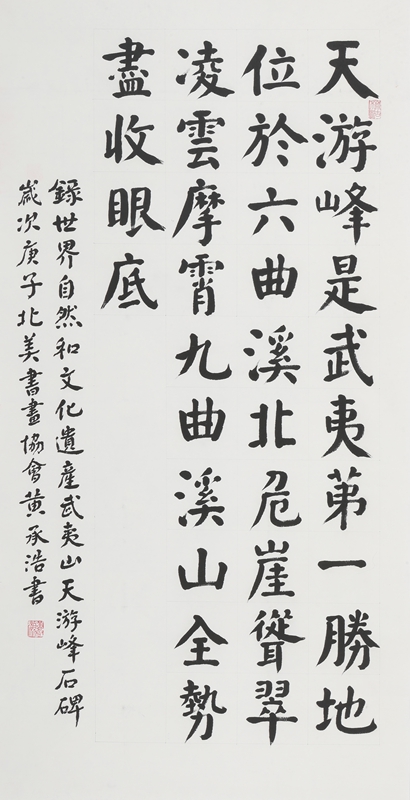 天游峰是武夷第一勝地
位於六曲溪北危崖聳翠
凌雲摩霄九曲溪山全勢
盡收眼底
錄世界自然和文化遺產武夷山天游峰石碑
歲次庚子北美書畫協會黄承浩書